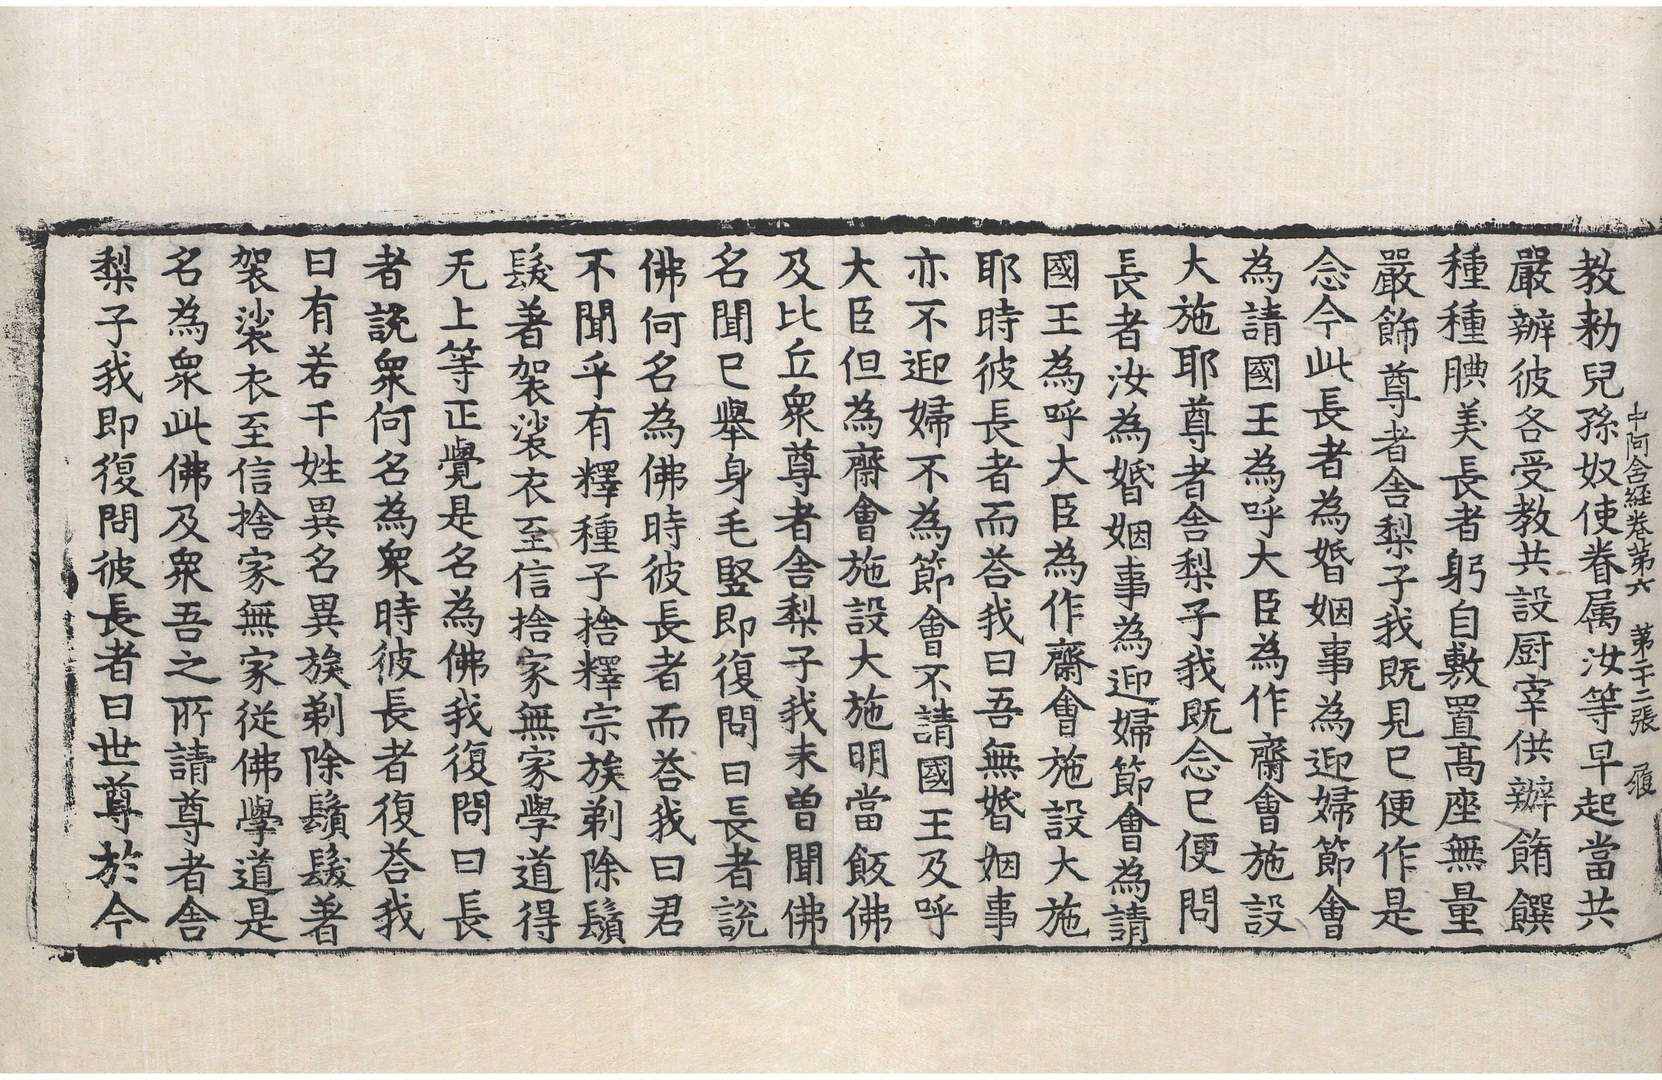 中阿含経卷第六 第二十二張 履
教勑兒孫奴使眷属汝等早起當共
嚴辦彼各受教共設厨宰供辦餚饌
種種腆美長者躬自敷置髙座無量
嚴飾尊者舍梨子我既見已便作是
念今此長者為婚姻事為迎婦節會
為請國王為呼大臣為作齋會施設
大施耶尊者舍梨子我既念已便問
長者汝為婚姻事為迎婦節會為請
國王為呼大臣為作齋會施設大施
耶時彼長者而荅我曰吾無婚姻事
亦不迎婦不為節會不請國王及呼
大臣但為齋會施設大施明當飯佛
及比丘衆尊者舍梨子我未曽聞佛
名聞已舉身毛竪即復問曰長者說
佛何名為佛時彼長者而荅我曰君
不聞乎有釋種子捨釋宗族剃除鬚
髮著袈裟衣至信捨家無家學道得
无上等正覺是名為佛我復問曰長
者說衆何名為衆時彼長者復荅我
曰有若干姓異名異族剃除鬚髮著
袈裟衣至信捨家無家從佛學道是
名為衆此佛及衆吾之所請尊者舍
梨子我即復問彼長者曰世尊於今